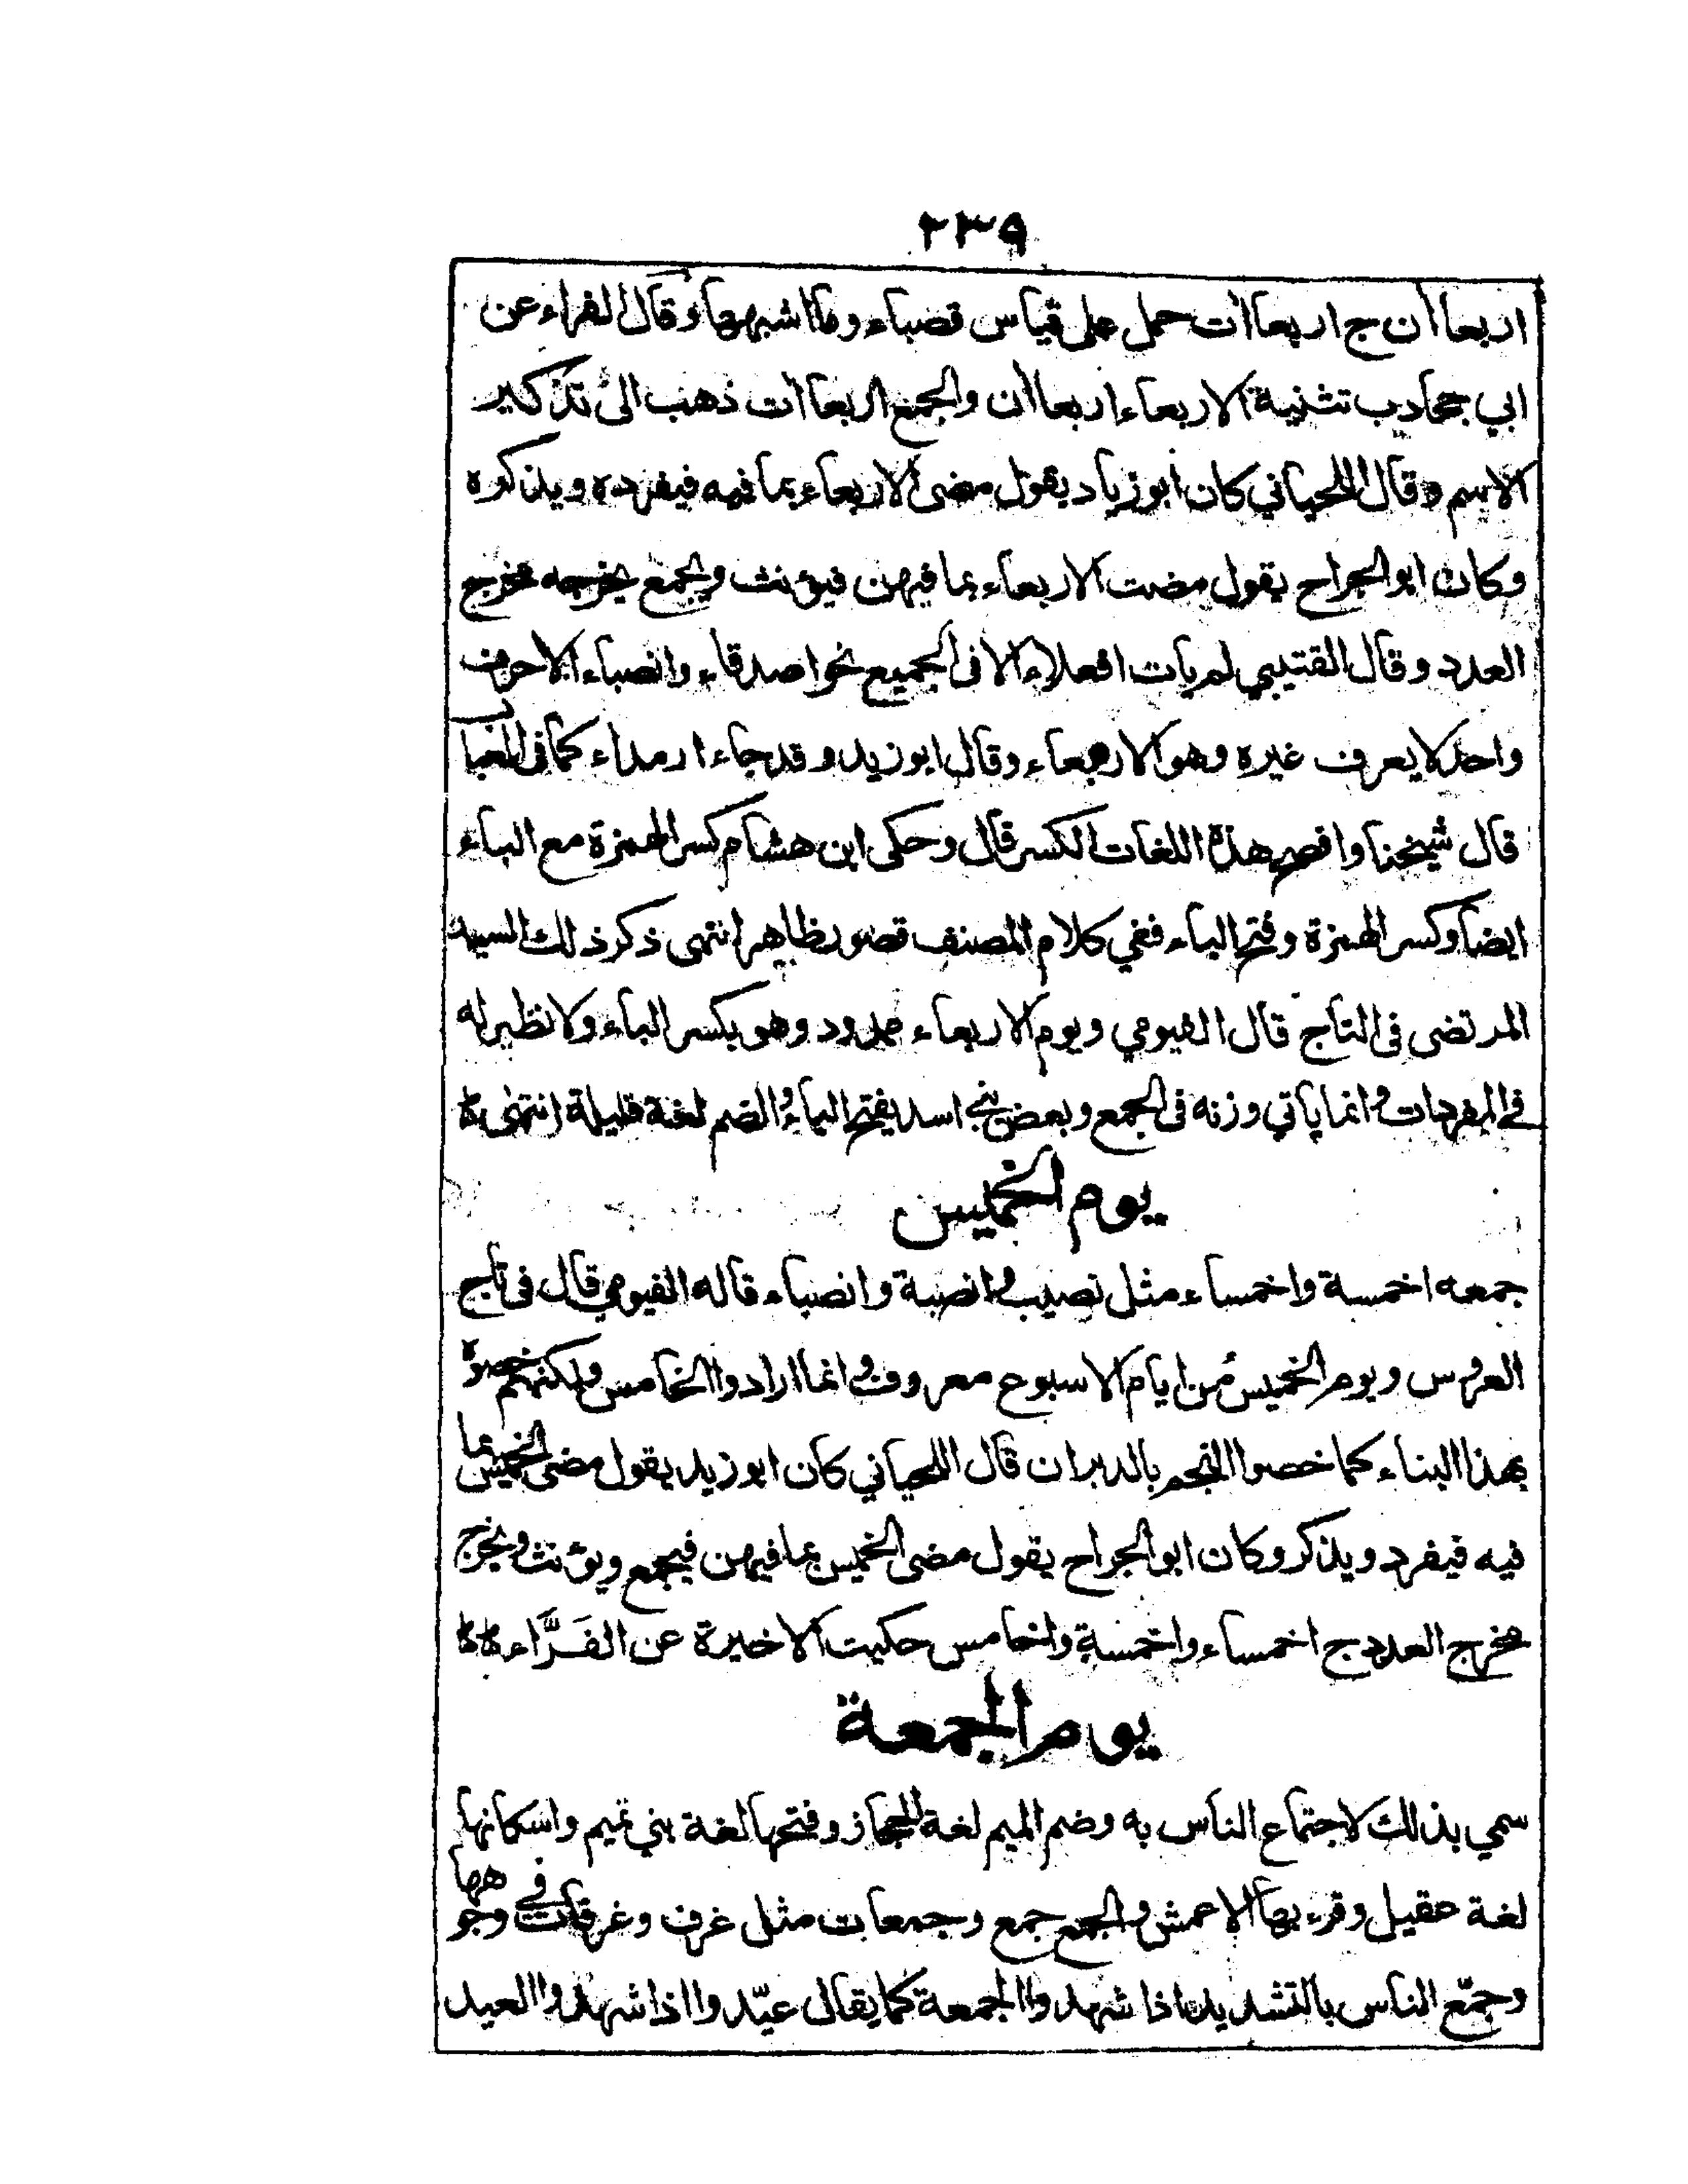 ٢٣٩
اربعاأن ج اربعاأت حمل على قياس قصباء وما اشبهها وقال الفراء عن
ابي جخادب تثنية الاربعاء اربعاأن والجمع اربعاأت ذهب الى تذكير
الاسم وقال اللحياني كان ابو زياد يقول مضى الاربعاء بما فيه فيفرده ويذكره
وكان ابو الجراح يقول مضت الاربعاء بما فيهن فيؤنث ويجمع يخرجه مخرج
العدد وقال القتيبي لم يات افعلاء الا في الجميع نحو اصدقاء وانصباء الا حرف
واحد لا يعرف غيره وهو الاربعاء وقال ابو زيد وقد جاء ارمداء كما في العباب
قال شيخنا وافصح هذه اللغات الكسر قال وحكى ابن هشام كسر الهمزة مع الباء
ايضا وكسر الهمزة وفتح الباء ففي كلام المصنف قصور ظاهر انتهى ذكر ذلك السيد
المرتضى في التاج قال الفيومي ويوم الاربعاء ممدود وهو بكسر الباء ولا نظير له
في المفردات وانما ياتي وزنه في الجمع وبعض بني اسد يفتح الباء والضم لغة قليلة انتهى
يوم الخميس
جمعه اخمسة واخمساء مثل نصيب وانصبة وانصباء قاله الفيومي قال في تاج
العروس ويوم الخميس من ايام الاسبوع معروف وانما ارادوا الخامس ولكنهم خصوه
بهذا البناء كما خصوا النجم بالدبران قال اللحياني كان ابو زيد يقول مضى الخميس بما
فيه فيفرد ويذكر وكان ابو الجراح يقول مضى الخميس بما فيهن فيجمع ويؤنث ويخرج
مخرج العدد ج اخمساء واخمسة واخامس حكيت الاخيرة عن الفَرَّاء
يوم الجمعة
سمي بذلك لاجتماع الناس به وضم الميم لغة الحجاز وفتحها لغة بني تميم واسكانها
لغة عقيل وقرء بها الاعمش والجمع جمع وجمعات مثل غرف وغرفات في وجوهها
وجمّع الناس بالتشديد اذا شهدوا الجمعة كما يقال عيّدوا اذا شهدوا العيد